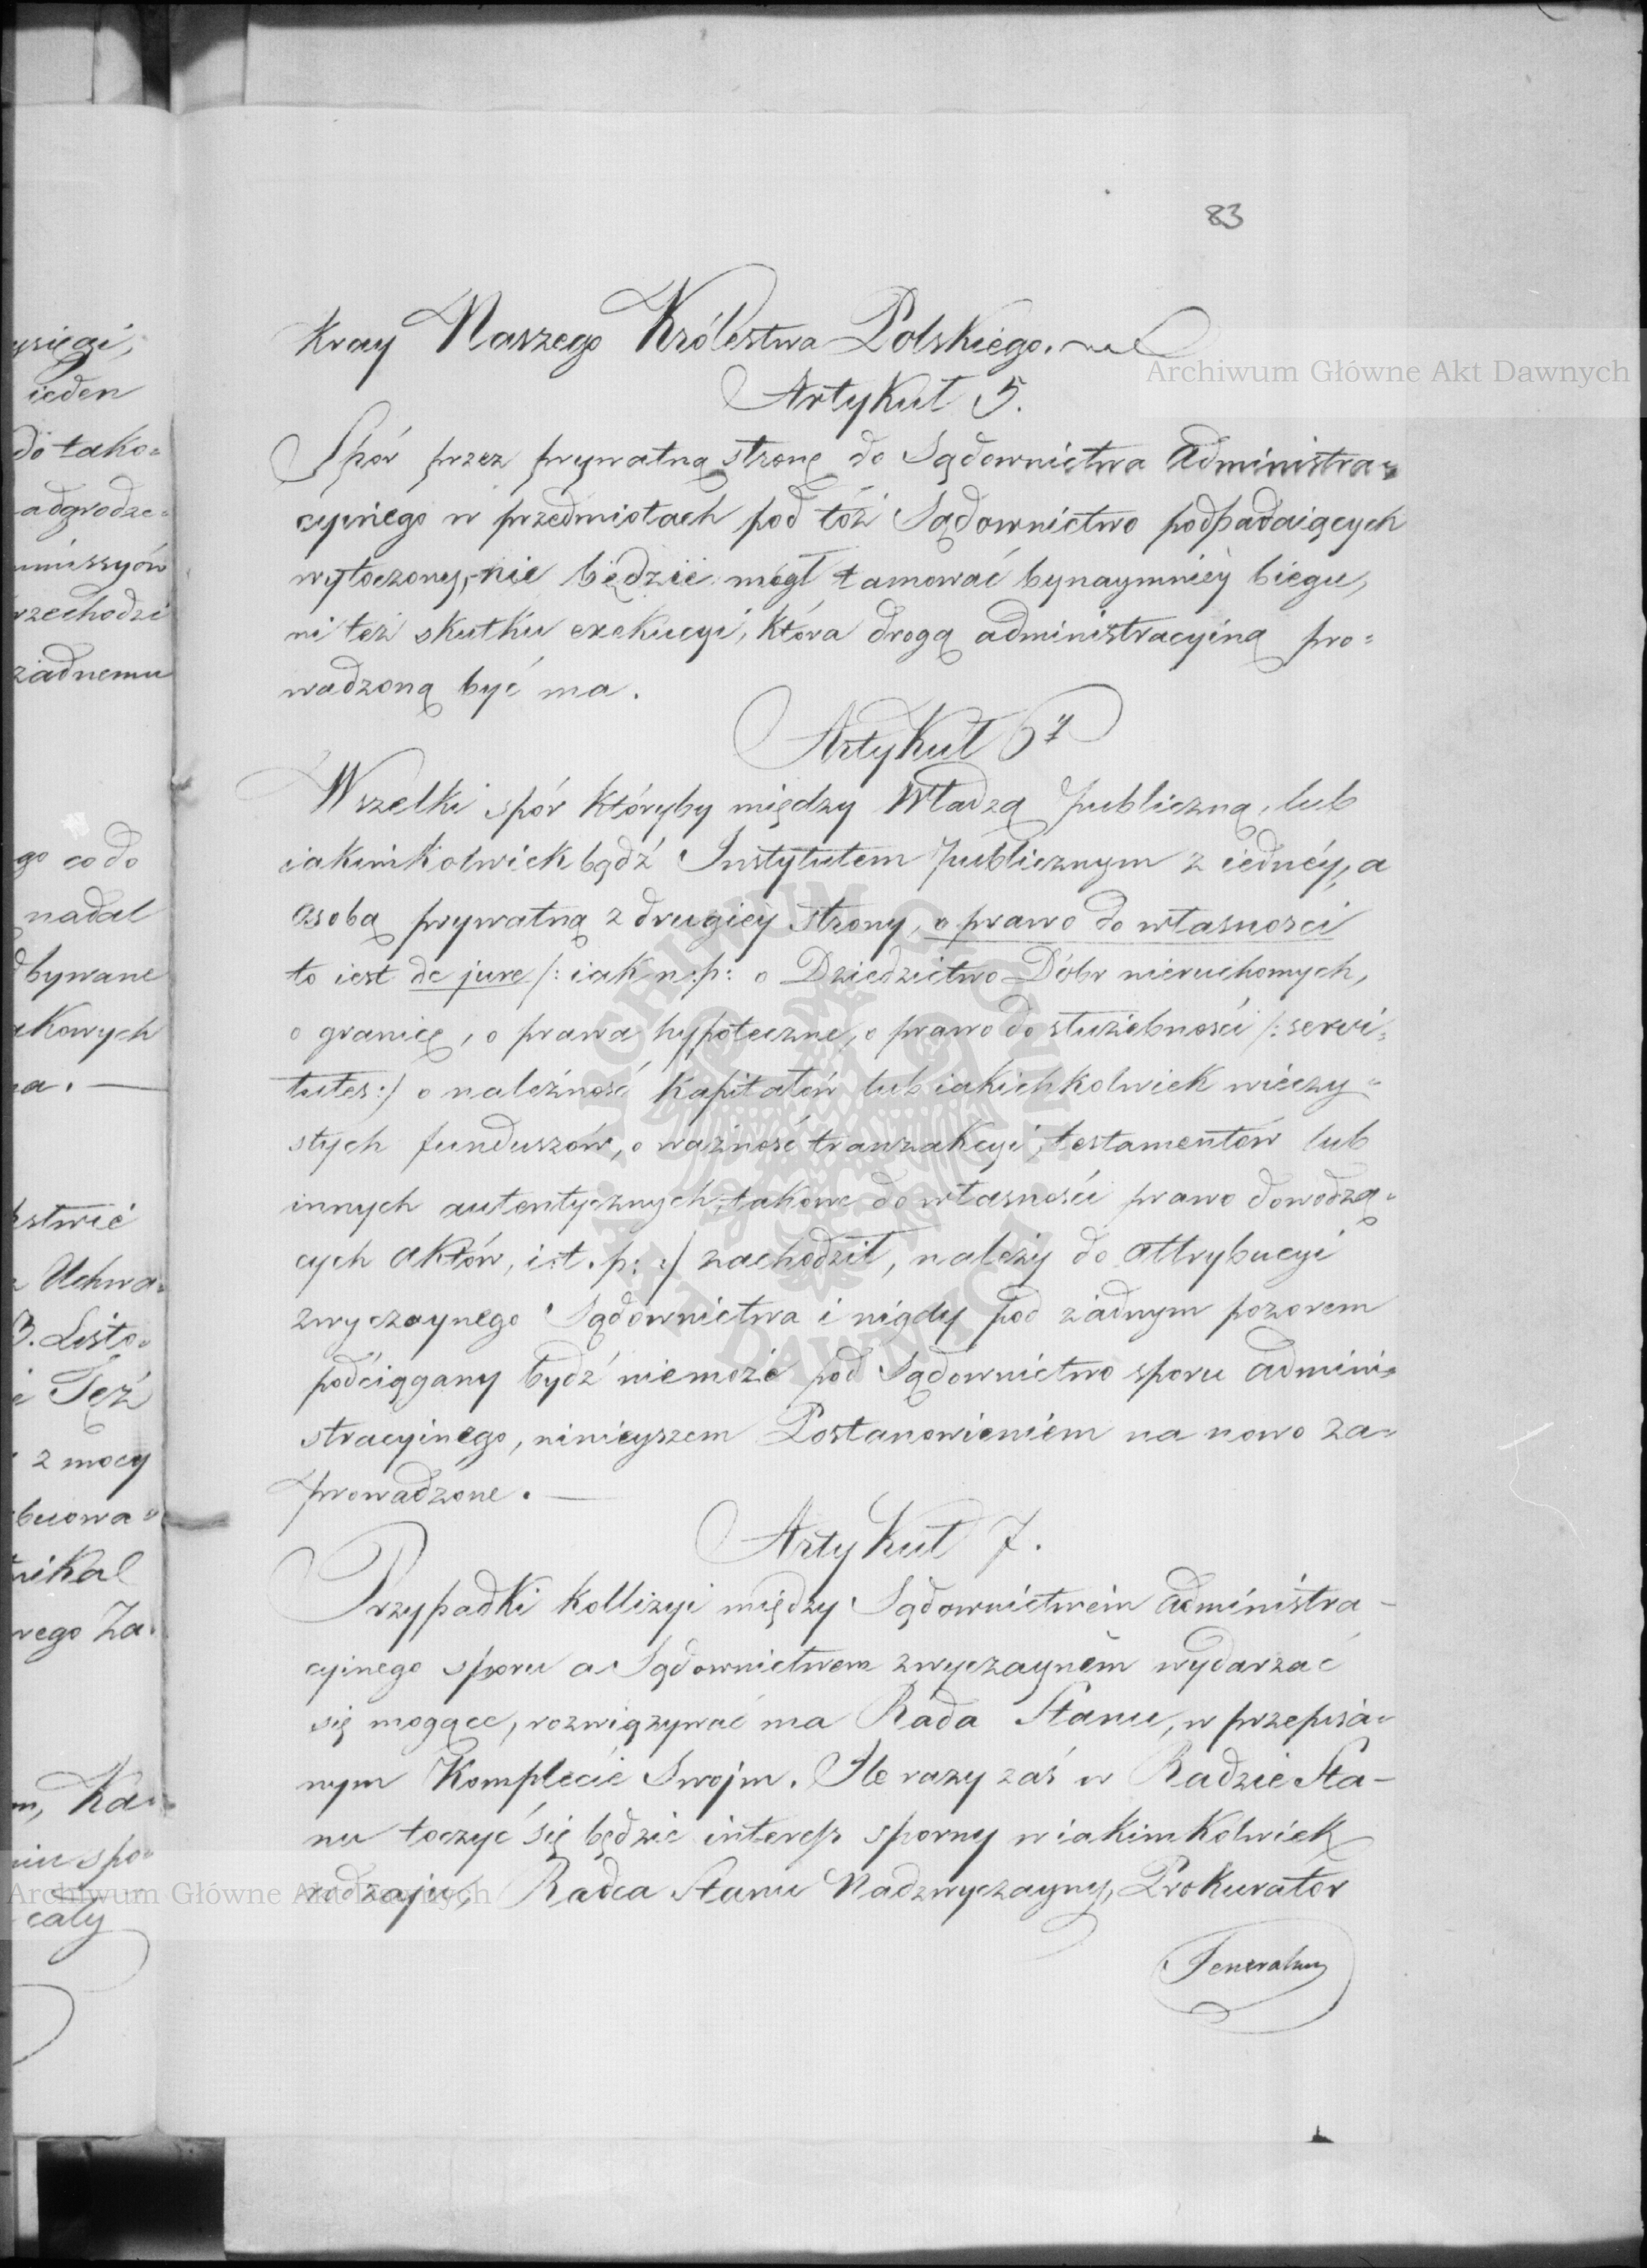 83
Kray Naszego Królestwa Polskiego.
Artykuł 5.
Spór przez prywatną stronę do Sądownictwa Administra=
cyinego w przedmiotach pod tóż Sądownictwo podpadaiących
wytoczony, nie będzie mógł tamować bynaymniéy biegu,
ni też skutku exekucyi, która drogą administracyiną pro=
wadzoną być ma.
Artykuł 6ty
Wszelki spór któryby między Władzą publiczną, lub
iakimkolwiek bądź Instytutem publicznym z iednéy, a
osobą prywatną z drugiéy strony, o prawo do własności
to iest de jure /: iak n:p: o Dziedzictwo Dóbr nieruchomych,
o granicę, o prawa hypoteczne, o prawo do służebności /: serwi=
tutes:/ o należność Kapitałów lub iakichkolwiek wieczy=
stych funduszów, o ważność tranzakcyi, testamentów lub
innych autentycznych takowe do własności prawo dowodzą=
cych aktów, i.t.p: :/ zachodził, należy do attrybucyi
zwyczaynego Sądownictwa i nigdy pod żadnym pozorem
podciągany bydź niemoże pod Sądownictwo sporu admini=
stracyinego, ninieyszem Postanowieniem na nowo za=
prowadzone. —
Artykuł 7.
Przypadki kollizyi między Sądownictwem administra-
cyinego sporu a Sądownictwem zwyczayném wydarzać
się mogące, rozwiązywać ma Rada Stanu, w przepisa=
nym Komplecie Swojm. Ile razy zaś w Radzie Sta-
nu toczyć się będzie interess sporny w iakimkolwiek
rodzaju, Radca Stanu Nadzwyczayny, Prokurator
Generalny
ysięgi,
ieden
do tako=
adgrodze=
mmissyów
rzechodzi
żadnemu
go co do
nadal
dbywane
akowych
na. —
Uchwa=
3. Listo=
i Też
z mocy
buowa=
nikal
rego Za=
m, Ka=
niu spo=
caly
Archiwum Główne Akt Dawnych
Archiwum Główne Akt Dawnych
ARCHIWUM GŁÓWNE AKT DAWNYCH